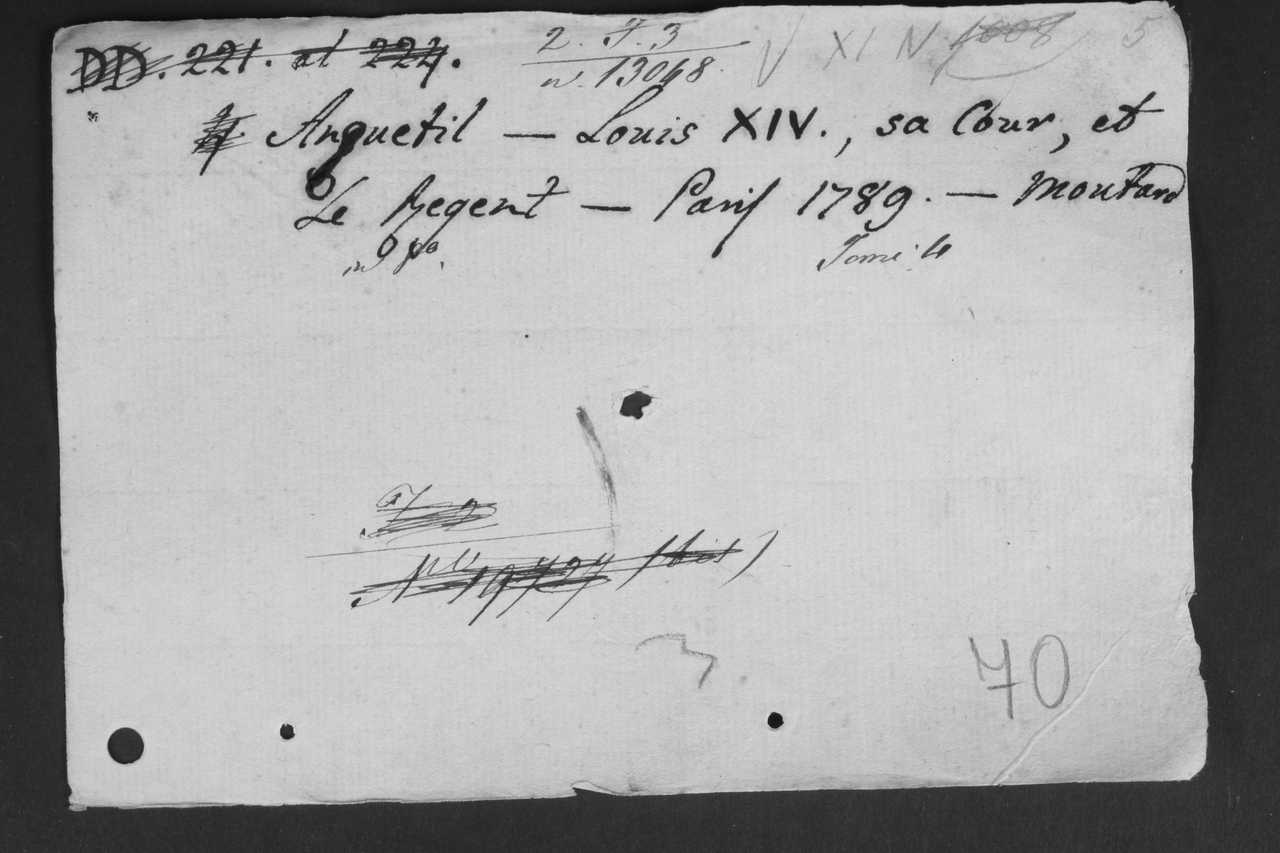 DD. 221. at 224.
2. F. 3
n. 13048.
V XI N 1008 5
4 Anquetil — Louis XIV., sa Cour, et
Le Regent — Paris 1789. — Moutard
in 8vo. Tome: 4
F 2
N 19424 (bis)
3
70